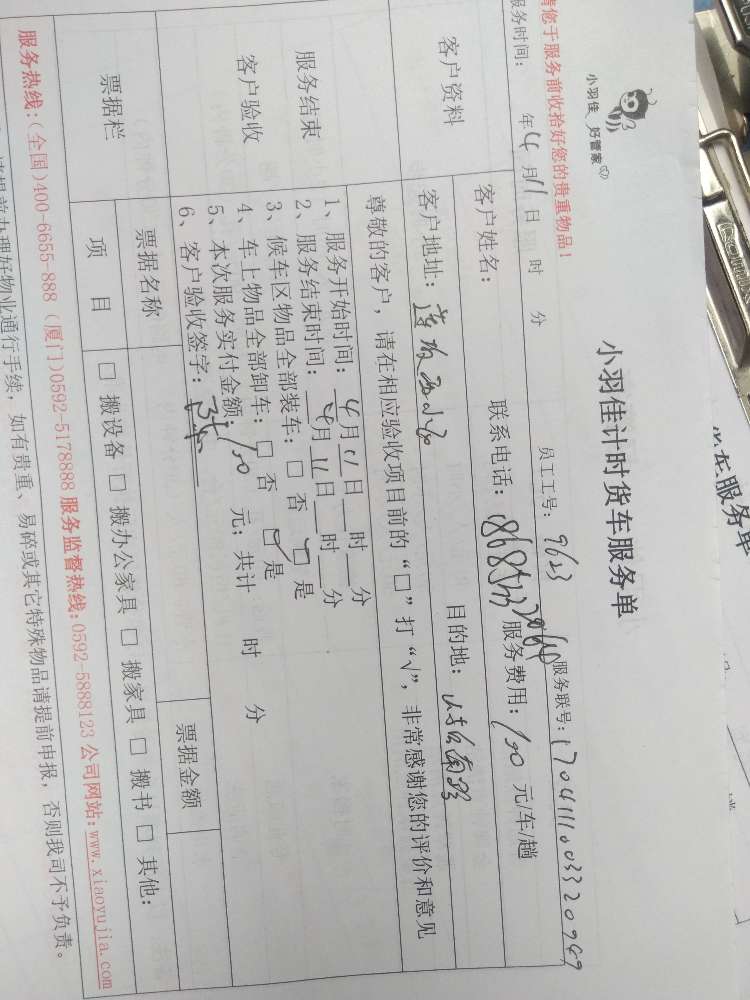 小羽佳 好管家
小羽佳计时货车服务单
员工工号：9623
服务联号：1704111003320949
您于服务前收拾好您的贵重物品！
服务时间： 年4月11日 时 分
客户资料
客户姓名： 联系电话： 服务费用：100元/车/趟
客户地址： 目的地：
服务结束
客户验收
尊敬的客户，请在相应验收项目前的“□”打“√”，非常感谢您的评价和意见
1、服务开始时间：4月11日__时__分
2、服务结束时间：4月11日__时__分
3、候车区物品全部装车：□否 ☑是
4、车上物品全部卸车：□否 ☑是
5、本次服务实付金额：100 元；共计 时 分
6、客户验收签字：
票据栏
票据名称 票据金额
项 目 □ 搬设备 □ 搬办公家具 □ 搬家具 □ 搬书 □ 其他：
服务热线：(全国)400-6655-888 (厦门)0592-5178888 服务监督热线:0592-5888123 公司网站:www.xiaoyujia.com
请提前办理好物业通行手续，如有贵重、易碎或其它特殊物品请提前申报，否则我司不予负责。
车服务单